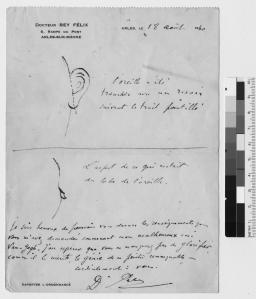 DOCTEUR REY FÉLIX
6, RAMPE DU PONT
ARLES-SUR-RHÔNE
ARLES, le 18 août 1930
L'oreille a été
tranchée avec un rasoir
suivant le trait pointillé
L'aspect de ce qui restait
du lobe de l'oreille
Je suis heureux de pouvoir vous donner les renseignements que
vous m'avez demandés concernant mon malheureux ami
Van Gogh. J'ose espérer que vous ne manquerez pas de glorifier
comme il le mérite le génie de ce peintre remarquable
cordialement à vous.
Dr Rey
RAPPORTER L'ORDONNANCE